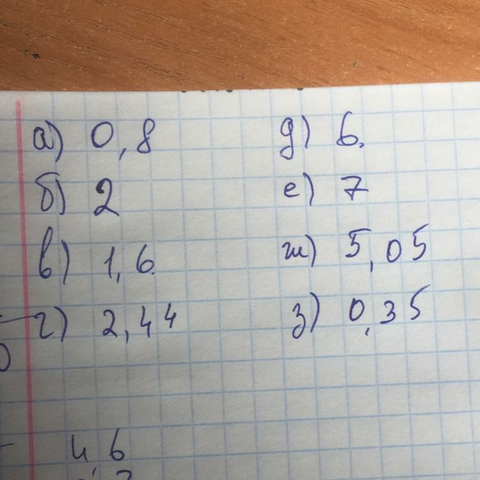 а) 0,8
б) 2
в) 1,6
г) 2,44
д) 6.
е) 7
ж) 5,05
з) 0,35
4,6